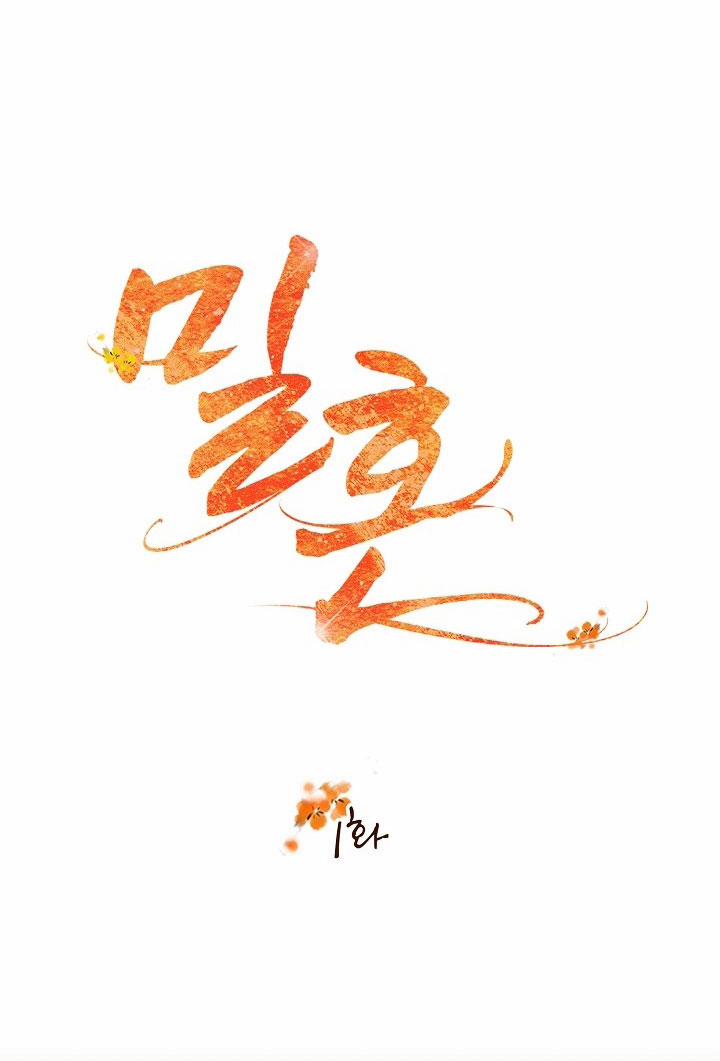 밀혼
1화